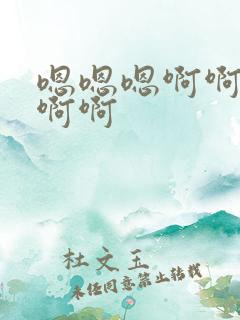 嗯嗯嗯啊啊
啊啊
杜文玉
未经同意禁止转载